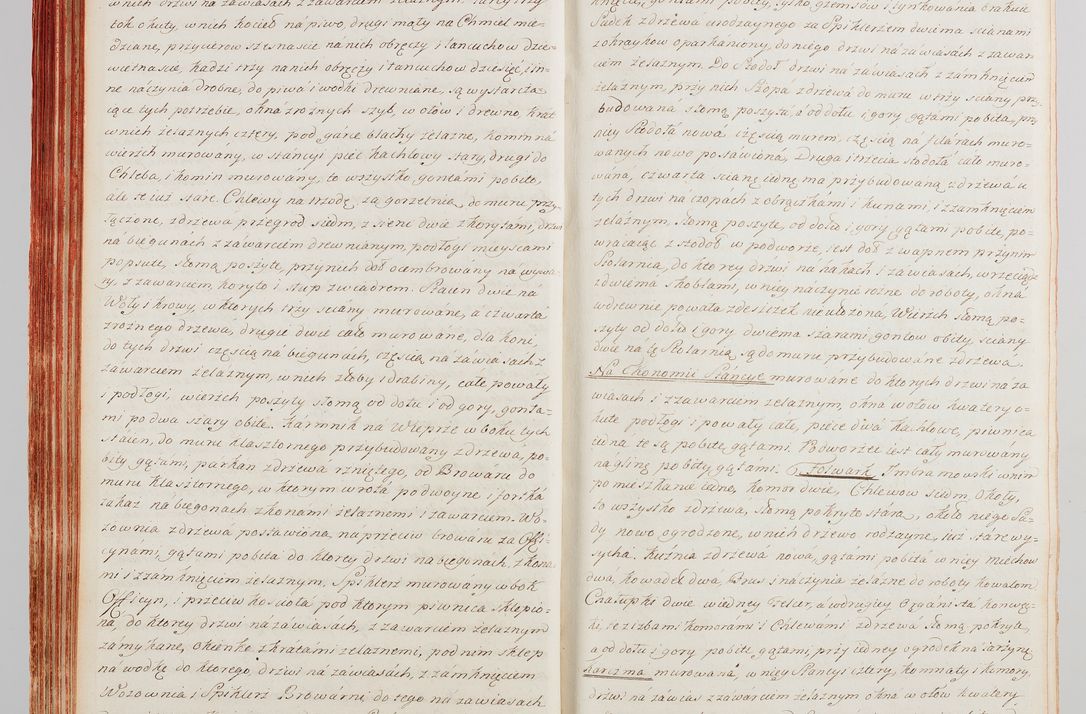 wnich drzwi na zawiasach z zawarciem zelaznym. Kadzi trzy
tok okuty, wnich kocieł na piwo, drugi mały na Chmiel mie-
dziane, przycierow szesnascie na nich obręczy i łancuchow dzie-
więtnascie, kadzi trzy na nich obręczy i łancuchow dziesięć, i in-
ne naczynia drobne, do piwa i wodki drewniane, są wystarcza-
iące tych potrzebie, okna z roznych szyb, w ołow i drewno, krat
wnich zelaznych cztery, pod gąrce blachy zelazne, komin ná
wierzch murowány, w stáncyi piec kachlowy stary, drugi do
Chleba, i komin murowány, to wszystko gontámi pobite,
ale te iuz stare. Chlewy na trzodę, za gorzelnią, do muru przy-
łączone, z drzewa przegrod siedm, z siene dwie z korytámi, drzwi
na biegunach z zawarciem drewnianym, podłogi mieyscami
popsute, słomą poszyte, przy nich doł ocembrowány na wywa-
ry, z zawarciem, koryto i słup z wiadrem. Staien dwie ná
Woły i krowy, w ktorych trzy sciány murowáne, a czwarta
z roznego drzewa, drugie dwie cało murowáne, dla koni,
do tych drzwi częscią na biegunach, częscią na zawiasach z
zawarciem zelaznym, wnich złoby i drabiny, całe powały
i podłogi, wierzch poszyty słomą od dołu i od gory, gonta-
mi po dwa szary obite. Karmnik ná Wieprze w boku tych
staien, do muru klasztornego przybudowány z drzewa, po-
bity gątami, parkan z drzewa rzniętego, od Browáru do
muru klasztornego, w ktorym wrotá podwoyne i fortka
takaz na biegonach z konami zelaznemi i zawarciem. Wo-
zownia z drzewá postawiona naprzeciw browáru za Offi-
cynámi, gątami pobita do ktorey drzwi na biegonach, z kona-
mi i z zamknięciem zelaznym, Spiklerz murowány w bok
Officyn, i przeciw kosciołá pod ktorym piwnica sklepio-
na, do ktorey drzwi na zawiasách, z zawarciem zelaznym
zámykane, okienko z kratami zelaznemi, pod nim sklep
ná wodkę do ktorego, drzwi na zawiasách, z zámknięciem
Wozownia i Spiklerz Browárny do tego na zawiasach
knięte, gontami pobity, tylko gzemsow i tynkowania brakuie
Sadek z drzewa urodzaynego za Spiklerzem dwiema scianami
z okraykow oparkaniony, do niego drzwi ná záwiasách z zawar-
ciem zelaznym. Do Stodoł drzwi ná záwiasách z zamknięciem
zelaznym, przy nich Szopa z drzewá do muru w trzy sciany, przy-
budowaná słomą poszytá, á od dołu i gory gątami pobita, przy
niey Stodoła nowa częscią murem, częscią na filárach muro-
wanych nowo postáwioná, Druga i trzecia stodoła cało muro-
wána, czwarta scianę iednę ma przybudowaną z drzewá u
tych drzwi na czopach z obrączkami i kunami, i z zamknięciem
zelaznym, słomą poszyte, od dołu i gory gątami pobite, po-
wracaiąc z stodoł w podworze, iest doł z wapnem przy nim
Stolarnia, do ktorey drzwi na hakach i zawiasach, wrzeciądz
z dwiema skoblami, w niey naczynie rożne do roboty, okna
w drewnie powała z desiczek nie ułożona, Wierzch słomą po-
szyty od dołu i gory dwiema szarami gontow obity, scianę
dwie ná tę Stolarnią są do muru przybudowáne z drzewá.
Na Ekonomii Stáncye murowáne do ktorych drzwi na za-
wiasach i z zawarciem zelaznym, okná w ołow kwatery o-
kute podłogi i powały całe, piece dwa kachlowe, piwnica
iedna te są pobite gątami. Podworzec iest cały murowány
na glinę pobity gątami. Folwark Imbramowski wnim
pomieszkanie iedne, komor dwie, Chlewow siedm, Okoły,
to wszystko z drzewa, słomą pokryte stara, około niego Sa-
dy nowo ogrodzone, wnich drzewo rodzayne, iuz stare wy-
sycha. Kuznia z drzewa nowa, gątami pobita w niey miechow
dwá, kowadeł dwá, Brus i naczynia zelazne do roboty kowalom
Chałupki dwie, w iedney Felczer, á w drugiey Organista konwen-
ki, te z izbami komorámi i Chlewami z drzewá słomą pokryte,
a od dołu i gory pobite gątami, przy iedney ogrodek na iarzyny
karczma murowaná, w niey Stancyi cztery, kommáty i komory,
drzwi ná záwias z zawarciem zelaznym okna w ołow kwatery